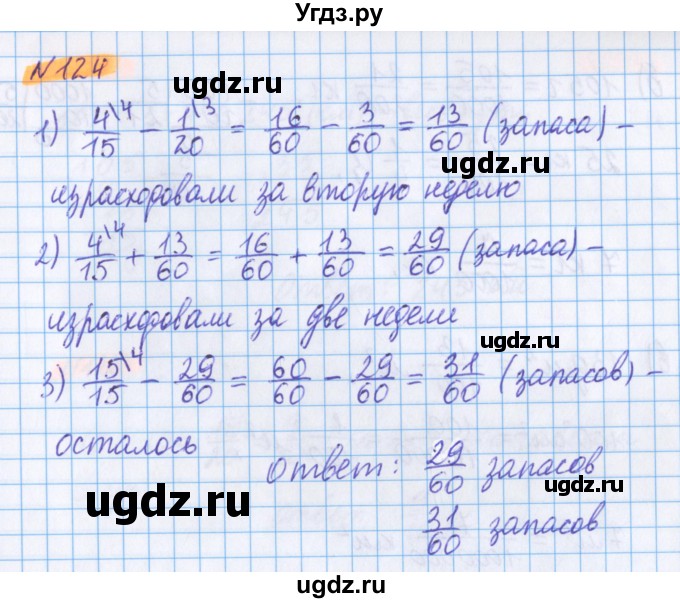 Угдз.ру
N 124
ugdz.ru
1) 4\4/15 − 1\3/20 = 16/60 − 3/60 = 13/60 (запаса) –
ugdz.ru
ugdz.ru
израсходовали за вторую неделю
2) 4\4/15 + 13/60 = 16/60 + 13/60 = 29/60 (запаса) –
ugdz.ru
израсходовали за две недели
ugdz.ru
3) 15\4/15 − 29/60 = 60/60 − 29/60 = 31/60 (запасов) –
ugdz.ru
осталось
Ответ: 29/60 запасов
ugdz.ru
ugdz.ru
31/60 запасов
ugdz.ru